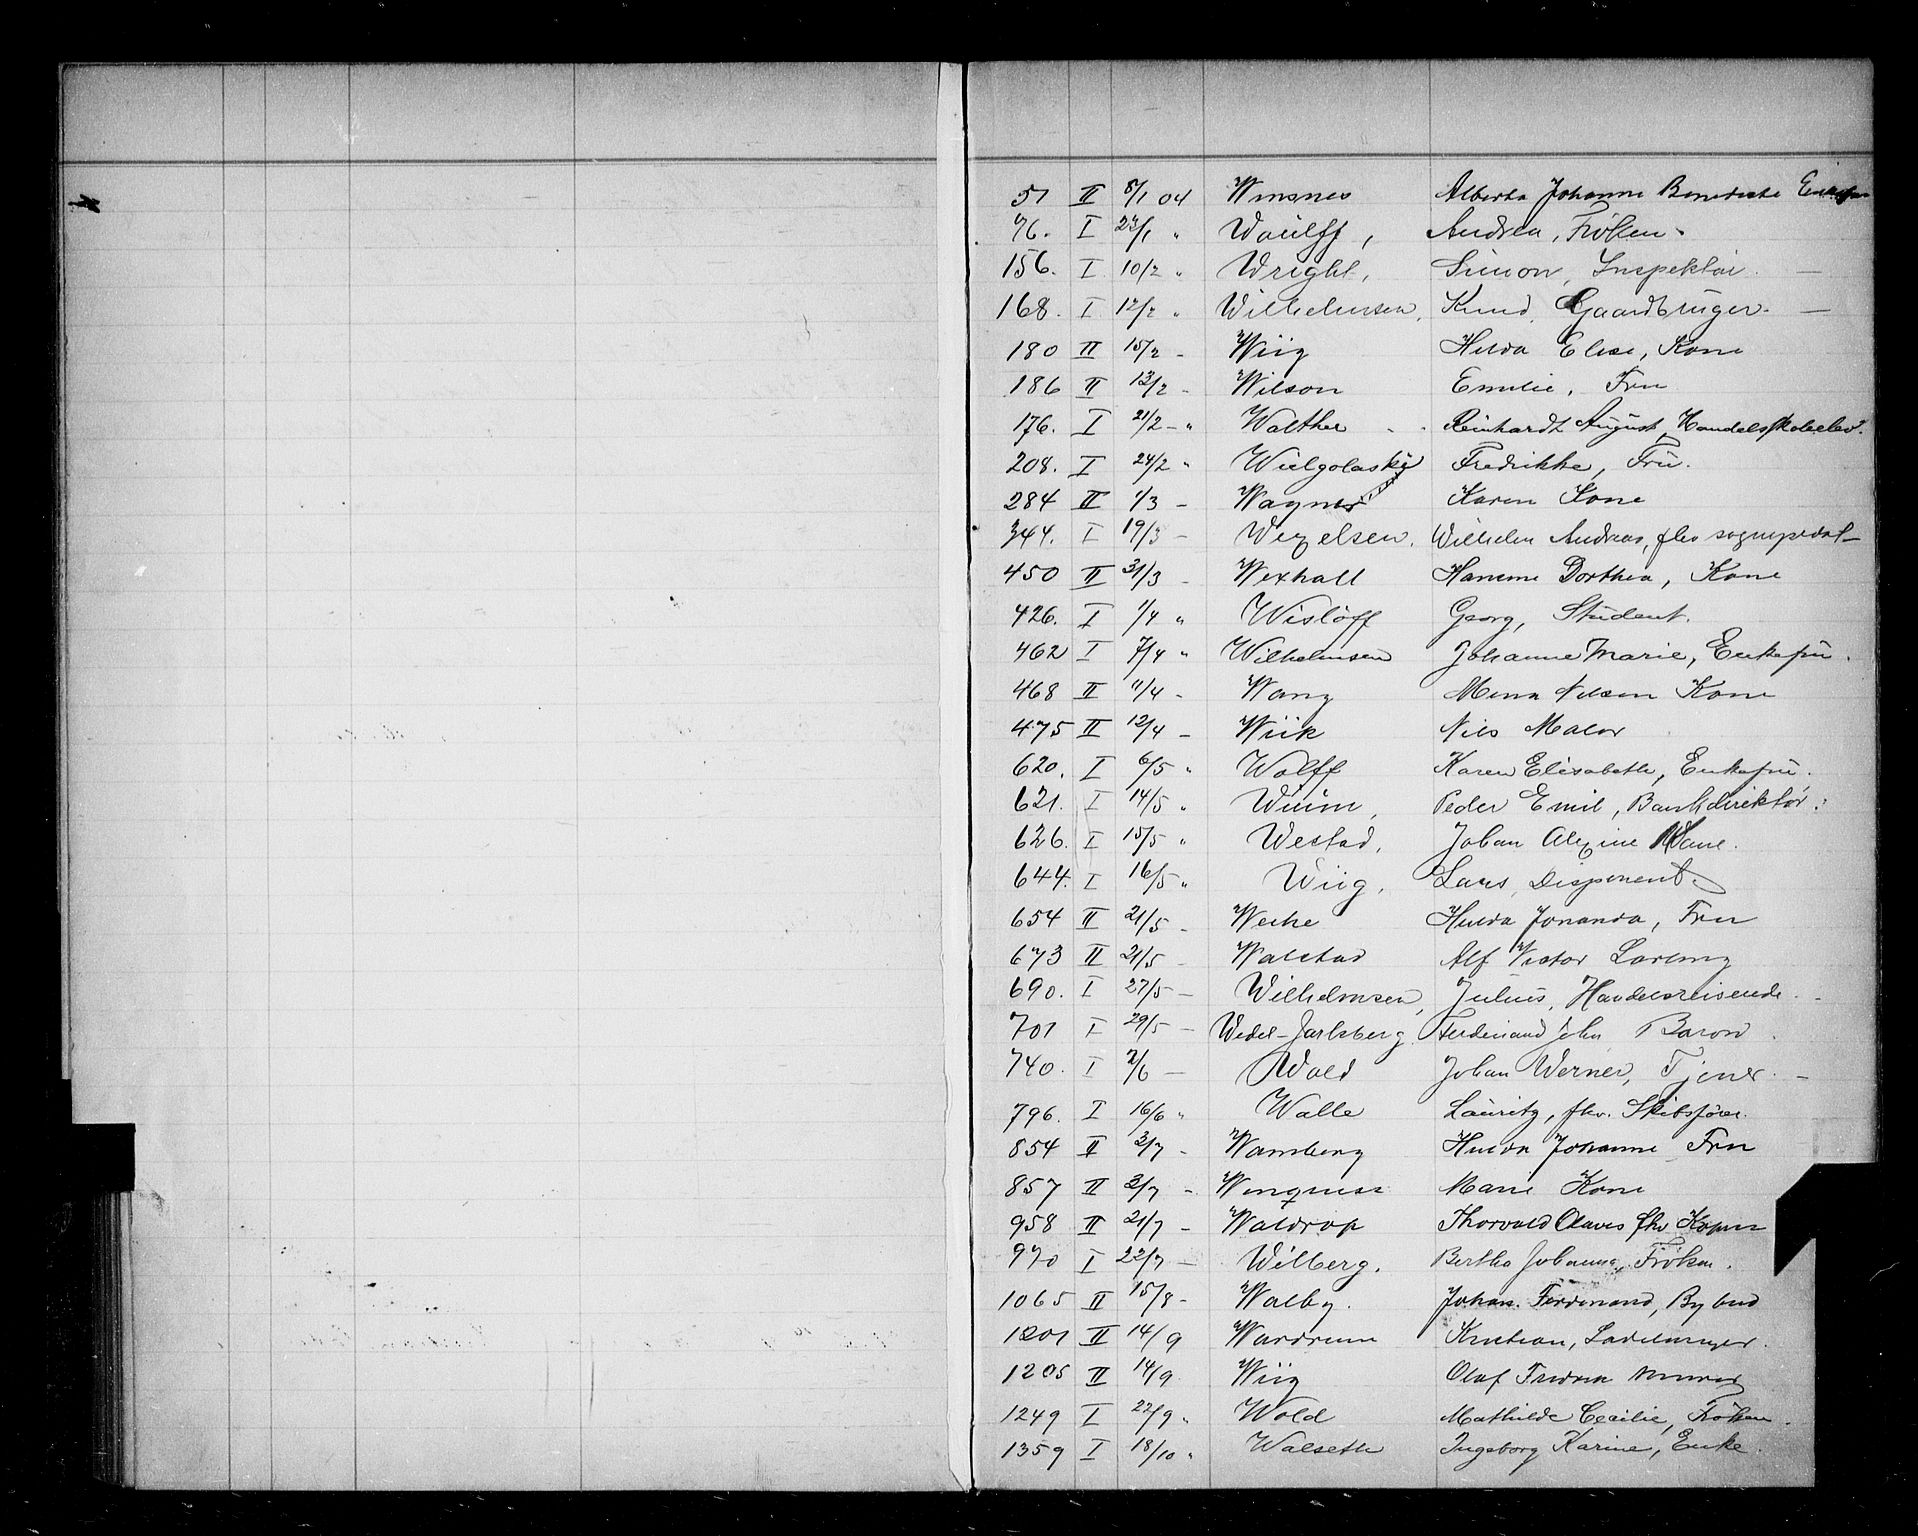 51 II 8/1 04 Winsnes Alberta Johanne Benedicte Enkefru
76. I 27/1 " Woulff, Andrea, Frøken.
156. I 10/2 " Wright, Simon, Inspektør. —
168. I 12/2 " Wilhelmsen, Knud, Gaardbruger. —
180 II 15/2 - Wiig Hilda Elise, Kone
186 II 13/2 - Wilson Emilie, Fru
176. I 21/2 - " Walther Reinhardt August, Handelsskoleelev.
208. I 24/2 " Wielgolaski Fredrikke, Frü.
284 II 1/3 - Wagner Karen Kone
344. I 19/3 - Wexelsen, Wilhelm Andreas, fhv sogneprest
450 II 31/3 - Wexhall Hanne Dorthea, Kone
426. I 1/4 " Wisløff Georg, Student.
462 I 7/4 " Wilhelmsen Johanne Marie, Enkefrü.
468 II 11/4 - Wang Mena Nilsen Kone
475 II 12/4 - Wiik Nils Maler
620. I 6/5 " Wolff Karen Elisabeth, Enkefrü.
621. I 14/5 " Wiüm, Peder Emil, Bankdirektør.
626. I 15/5 " Westad, Johan Alexine
644. I 16/5 " Wiig, Lars, Disponent.
654 II 21/5 - Weihe Hulda Jonanda, Fru
673 II 21/5 - Walstad Alf Victor Lærling
690. I 27/5 — Wilhelmsen, Julius, Handelsreisende.
701 I 29/5 — Wedel-Jarlsberg Ferdinand John Baron
740. I 2/6 — Wold Johan Werner, Tjener. —
796. I 16/6 " Walle Lauritz, fhv. Skibsfører.
854 II 3/7 - Wamberg Hulda Johanne Fru
857 II 3/7 - Winquist Marie Kone
958 II 21/7 - Waldrop Thorvald Olaves fhv
970 I 22/7 — Wilberg, Bertha Johanne, Frøken.
1065 II 15/8 - Walby. Johan. Ferdinand, Bybud
1201 II 14/9 Wardrum Kristian, Ladelmager.
1205 II 14/9 Wiig Olaf Fredrik Murer
1249 I 22/9 " Wold Mathilde Cecilie, Frøken.
1359 I 18/10 " Walseth Ingeborg Karine, Enke.